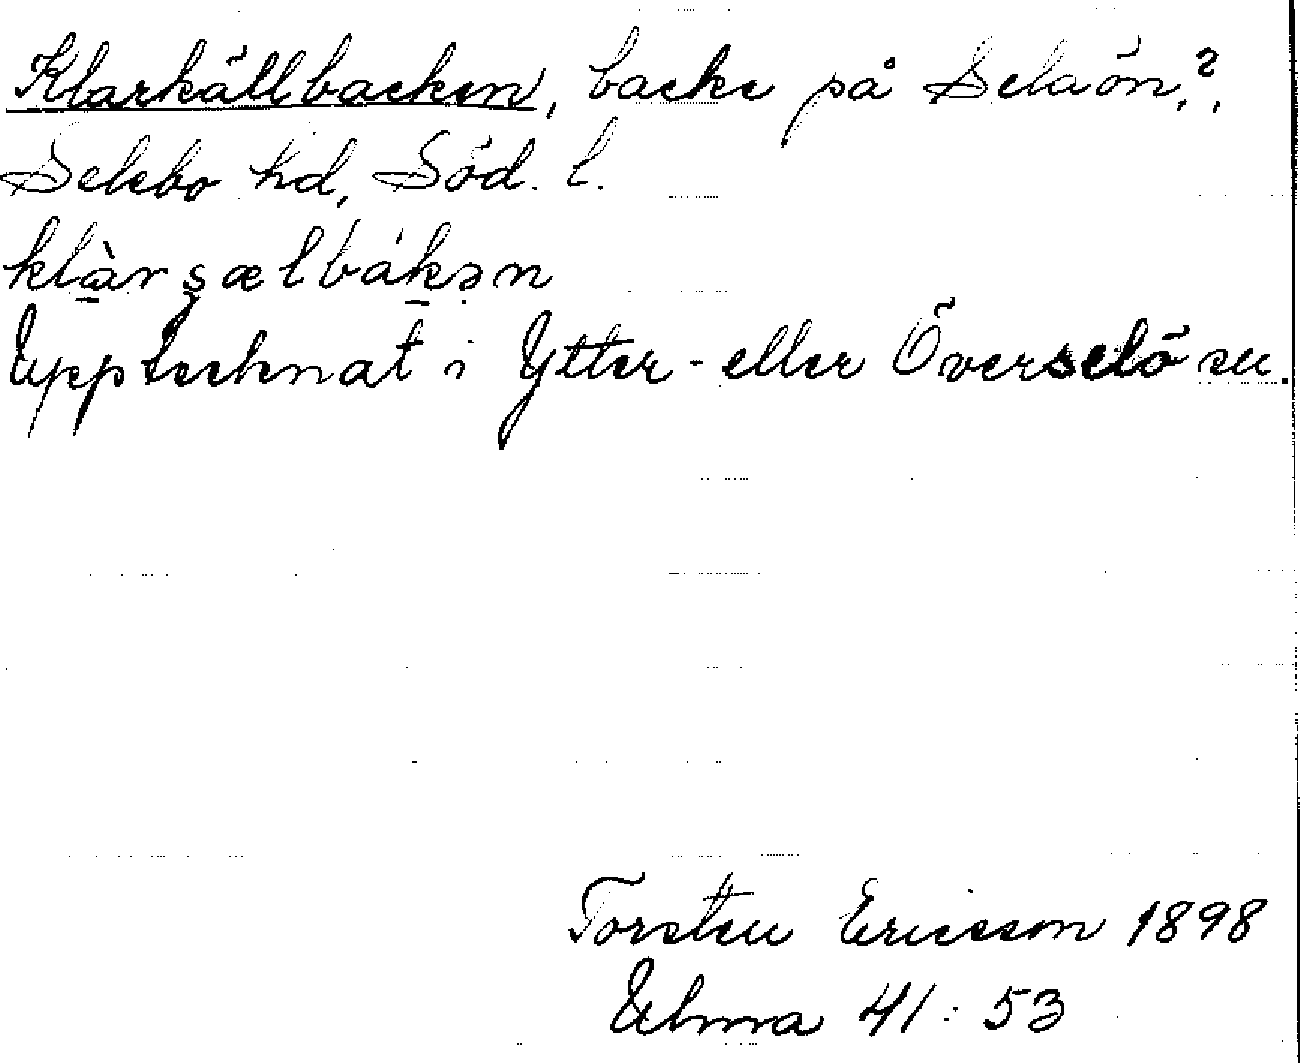 Klarkällbacken, backe på Selaön?,
Selebo hd, Söd. l.
klàr şælbákən
Upptecknat i Ytter- eller Överselö sn.
Torsten Ericsson 1898
Ulma 41:53